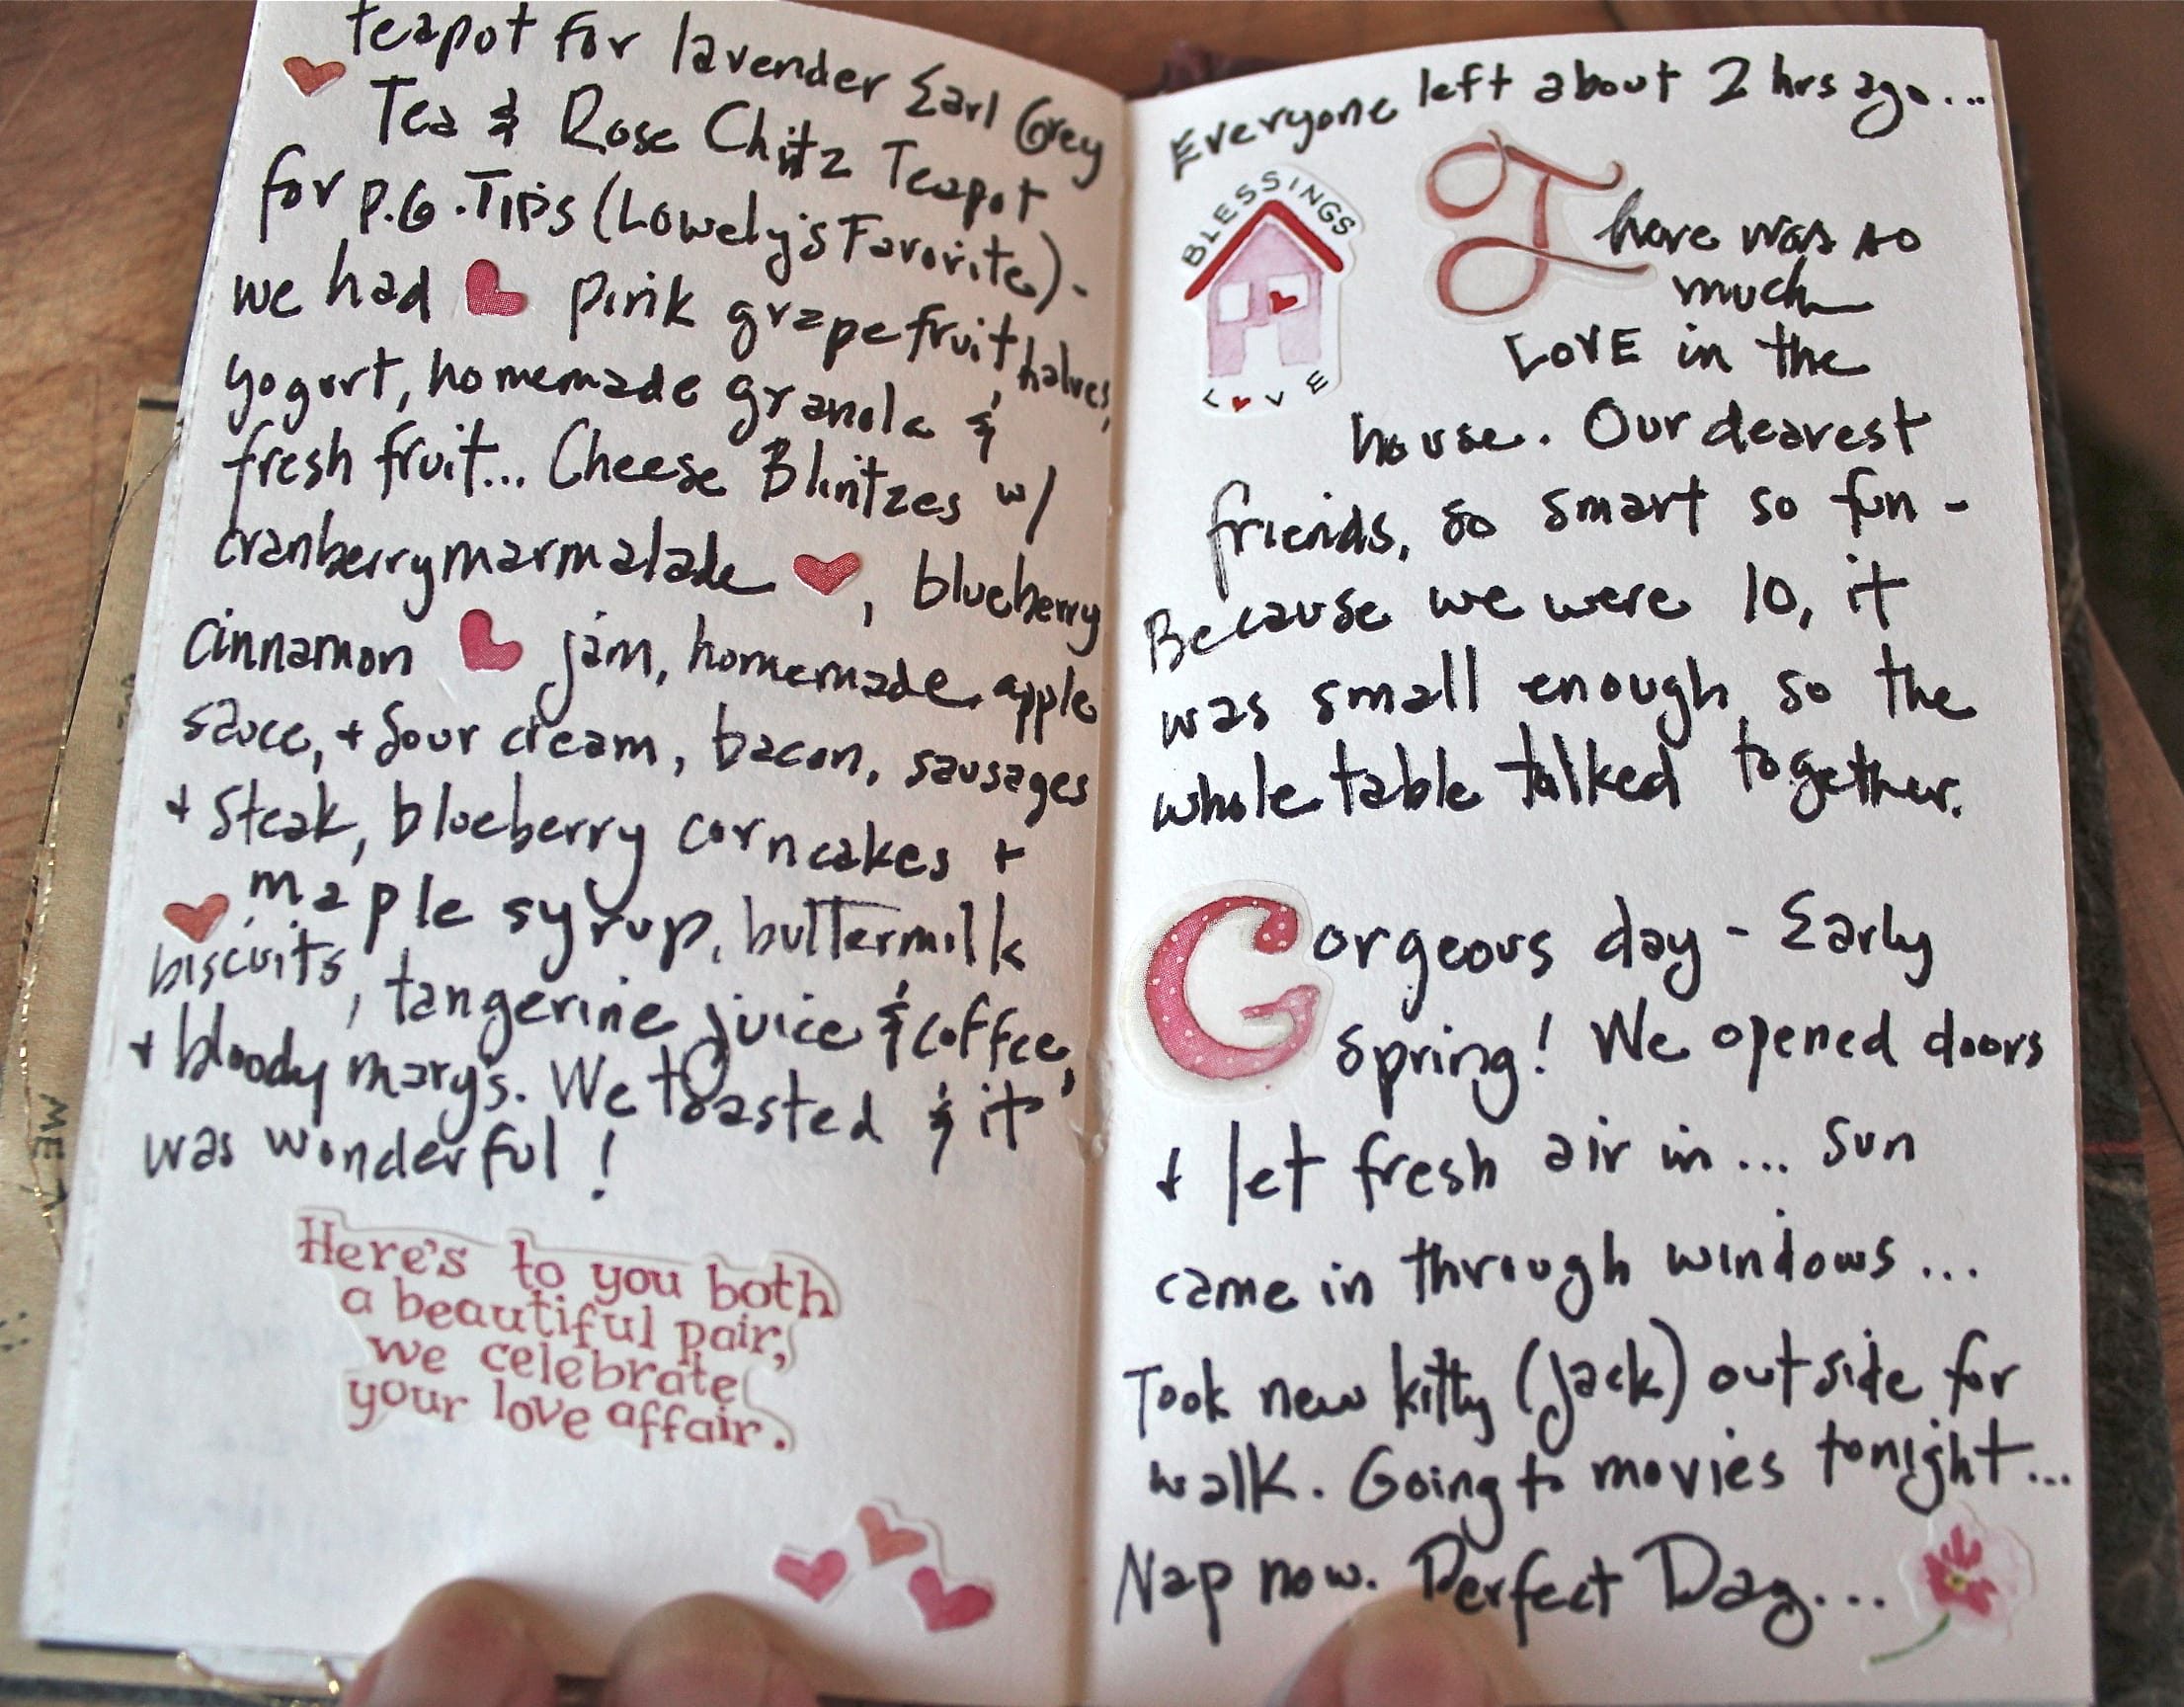 teapot for lavender Earl Grey
Tea & Rose Chitz Teapot
for P.G. Tips (Lowely's Favorite)-
we had pink grapefruit halves,
yogurt, homemade granola &
fresh fruit... Cheese Blintzes w/
cranberry marmalade, blueberry
cinnamon jam, homemade apple
sauce, + sour cream, bacon, sausages
+ steak, blueberry corncakes +
maple syrup, buttermilk
biscuits, tangerine juice & coffee,
+ bloody mary's. We toasted & it
was wonderful!
Here's to you both
a beautiful pair,
we celebrate
your love affair.
Everyone left about 2 hrs ago...
BLESSINGS
LOVE
There was so
much
LOVE in the
house. Our dearest
friends, so smart so fun -
Because we were 10, it
was small enough so the
whole table talked together.
Gorgeous day - Early
spring! We opened doors
+ let fresh air in... sun
came in through windows...
Took new kitty (Jack) outside for
walk. Going to movies tonight...
Nap now. Perfect Day....